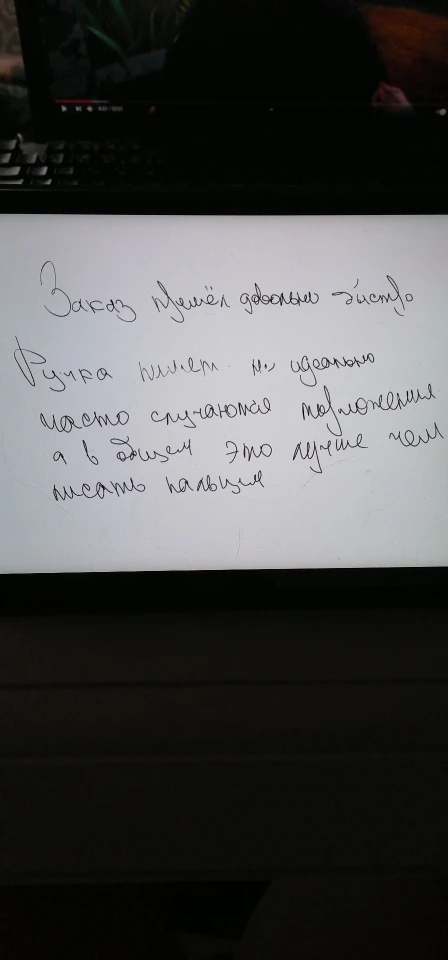 Заказ пришёл довольно быстро
Ручка пишет не идеально
часто случаются торможения
а в общем это лучше чем
писать пальцем